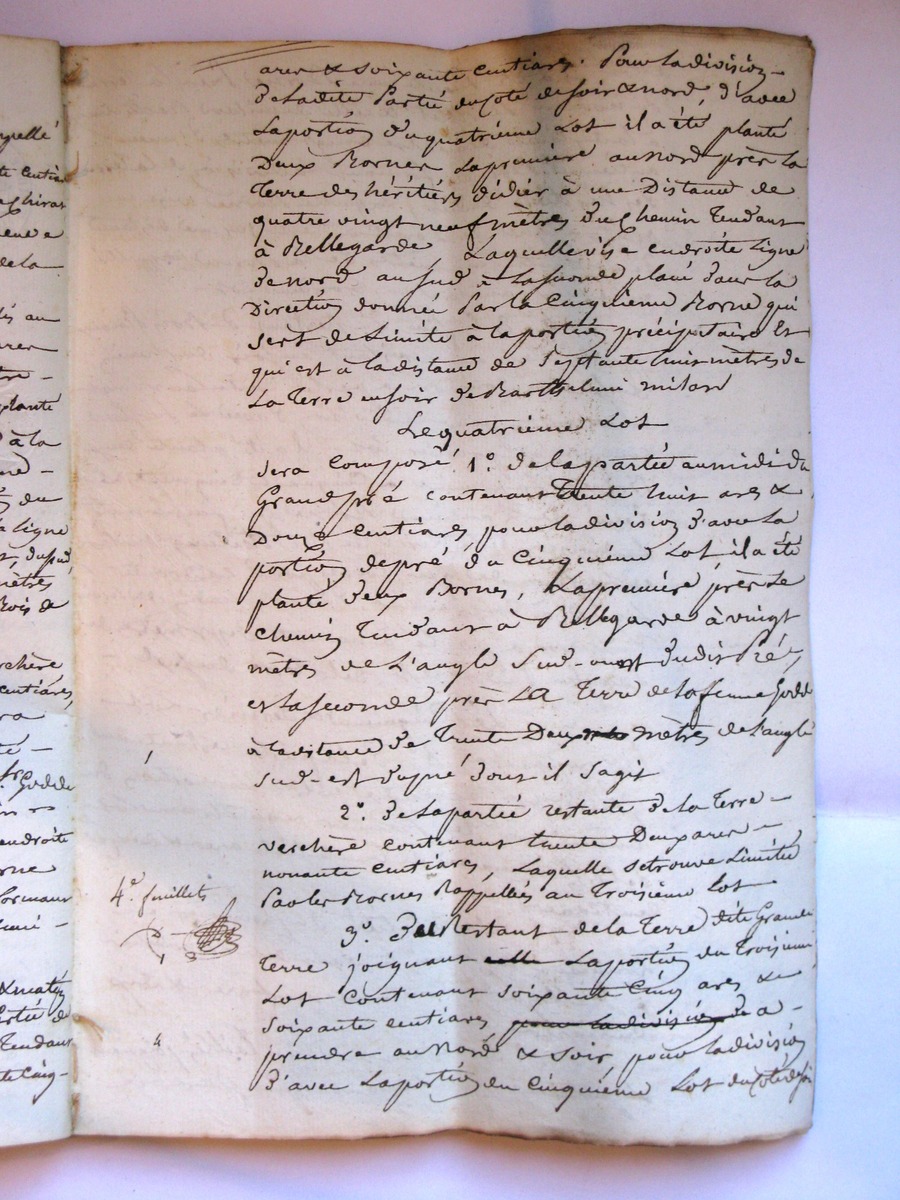 ares & soixante centiares. Pour la division
de la dite Partie du Coté de soir & nord, d'avec
La portion du quatrieme Lot il a été planté
Deux Bornes La premiere au nord près la
Terre des héritiers didier à une Distance de
quatre vingt neuf mètres du Chemin Tendant
à Bellegarde Laquelle vise en droite Ligne
de nord au sud à La seconde placé dans la
Direction donnée Par la Cinquieme Borne qui
sert de Limite à la portion précipitaire Et
qui est à la distance de septante huit mètres de
La Terre en soir de Barthelemi milan
Le quatrieme Lot
sera Composé 1.º de la partie au midi du
Grand pré contenant trente huit ares &
Douze centiares, pour la division d'avec la
portion de pré du Cinquième Lot, il a été
planté deux Bornes, La premiere près Le
Chemin Tendant à Bellegarde à vingt
mètres de L'angle Sud-ouest dudit Pré,
et la seconde près La Terre de la femme Godde
à la distance de Trente Deux mètres de L'angle
Sud-est du pré dont il s'agit
2.º de la partie restante de la Terre
verchère contenant trente Deux ares
nonante centiares, Laquelle se trouve Limitée
Par les Bornes Rappellées au Troisieme Lot
4.e feuillets
3.º Du Restant de la Terre dite Grande
Terre joignant La portion du Troisieme
Lot contenant soixante Cinq ares &
soixante centiares, pour la division de a
prendre au Nord & soir pour la division
D'avec La portion du Cinquième Lot du Coté de soir